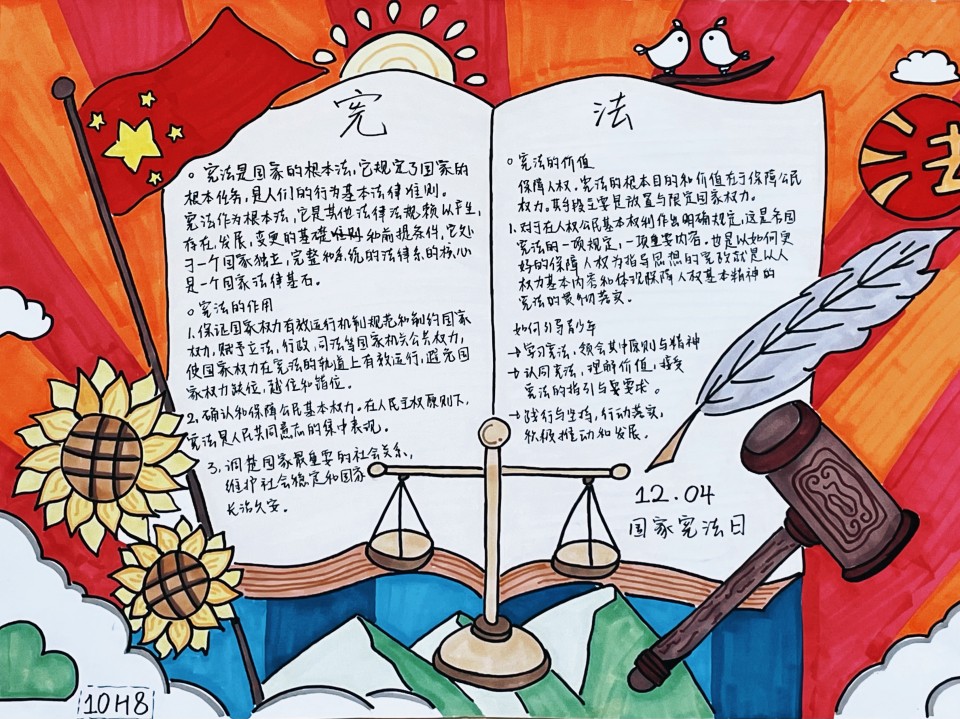 宪
法
。宪法是国家的根本法，它规定了国家的
根本任务，是人们的行为基本法律准则。
宪法作为根本法，它是其他法律法规赖以产生，
存在，发展，变更的基础准则和前提条件，它处
于一个国家独立，完整和系统的法律系的核心
是一个国家法律基石。
。宪法的作用
1.保证国家权力有效运行机制规范和制约国家
权力，赋予立法，行政，司法等国家机关公共权力，
使国家权力在宪法的轨道上有效运行，避免国
家权力缺位，越位和错位。
2.确认和保障公民基本权力。在人民主权原则下，
宪法是人民共同意志的集中表现。
3.调整国家最重要的社会关系，
维护社会稳定和国家
长治久安。
。宪法的价值
保障人权。宪法的根本目的和价值在于保障公民
权力。其手段主要是放置与限定国家权力。
1.对于在人权公民基本权利作出明确规定，这是各国
宪法的一项规定，一项重要内容。也是以如何更
好的保障人权为指导思想的宪政就是以人
权力基本内容和体现保障人权基本精神的
宪法的落实。
如何引导青少年
→学习宪法，领会其中原则与精神
→认同宪法，理解价值，接受
宪法的指引与要求。
→践行与坚持，行动落实，
积极推动和发展。
12.04
国家宪法日
法
10H8